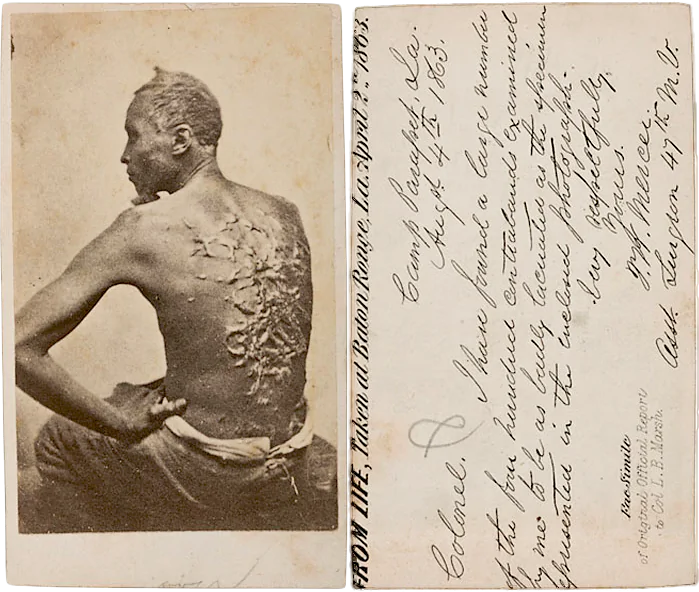 FROM LIFE, Taken at Baton Rouge, La. April 2d. 1863.
Camp Parapet, La.
Augt 4th 1863.
Colonel.
I have found a large number
of the four hundred contrabands examined
by me to be as badly lacerated as the specimen
represented in the enclosed photograph.
Very respectfully
Yours.
Mercer.
Asst. Surgeon 47th M.V.
Fac-Simile
of Original Official Report
to Col L. B. Marsh.